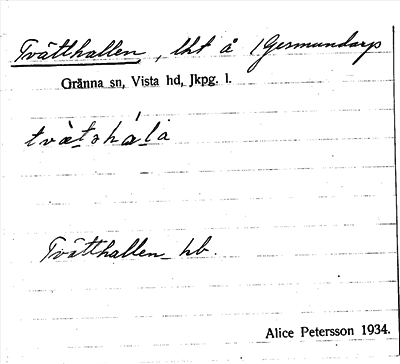 Tvätthallen, lht å Gesmundarp
Gränna sn, Vista hd, Jkpg. l.
Tvätthallen hb.
Alice Petersson 1934.